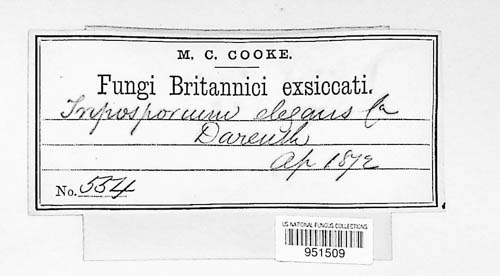 M. C. COOKE.
Fungi Britannici exsiccati.
Triposporium elegans Ca
Darenth
Ap 1872
No. 554
US NATIONAL FUNGUS COLLECTIONS
951509